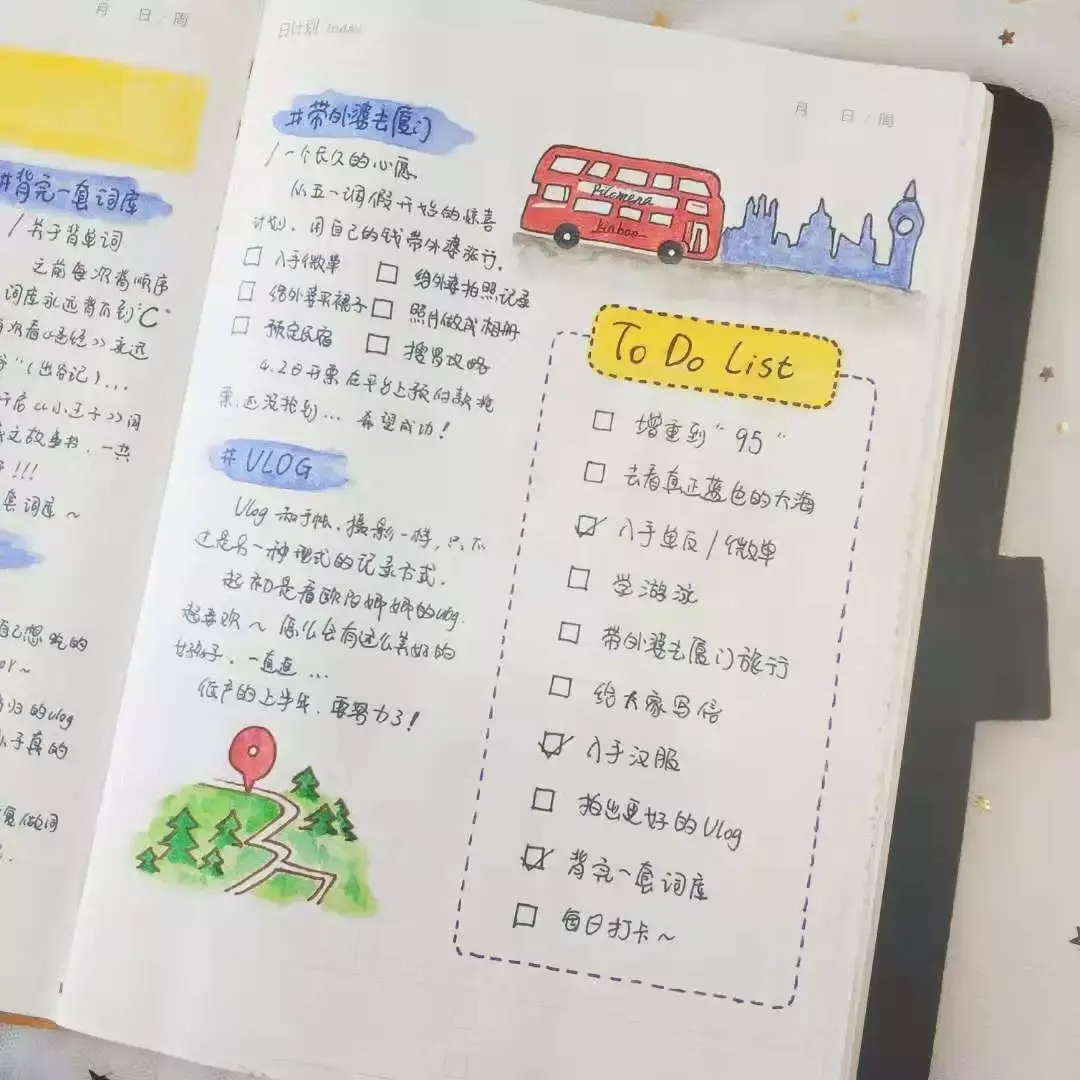 月 日/周
#背完一套词库
/关于背单词
之前每次背顺序
词库永远背不到"C"
次看《圣经》永远
"(出谷记)...
开启《小王子》词
文故事书,一共
!!!
套词库~
自己想吃的
or~
归的vlog
子真的
做词
日计划 today
月 日/周
#带外婆去厦门
/一个长久的心愿
从五一调假开始的惊喜
计划,用自己的钱带外婆旅行.
□ 入手微单
□ 给外婆拍照记录
□ 给外婆买裙子
□ 照片做成相册
□ 预定民宿
□ 搜罗攻略
4.28开票在平台上预付款抢
票,还没抢到... 希望成功!
#VLOG
Vlog 和手帐、摄影一样,只不
过是另一种形式的记录方式.
起初是看欧阳娜娜的vlog.
超喜欢~ 怎么会有这么美好的
女孩子,一直追...
低产的上半年,要努力了!
Pilomena
Kinbor
To Do List
□ 增重到"95"
□ 去看真正蓝色的大海
☑ 入手单反/微单
□ 学游泳
□ 带外婆去厦门旅行
□ 给大家写信
☑ 入手汉服
□ 拍出更好的Vlog
☑ 背完一套词库
□ 每日打卡~